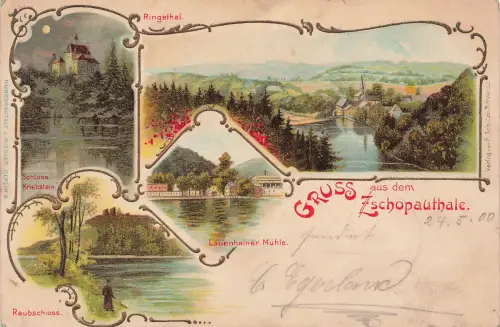 Ringethal.
Schloss
Kriebstein.
Lauenhainer Mühle.
Raubschloss.
GRUSS aus dem
Zschopauthale.
24.5.00
sendet